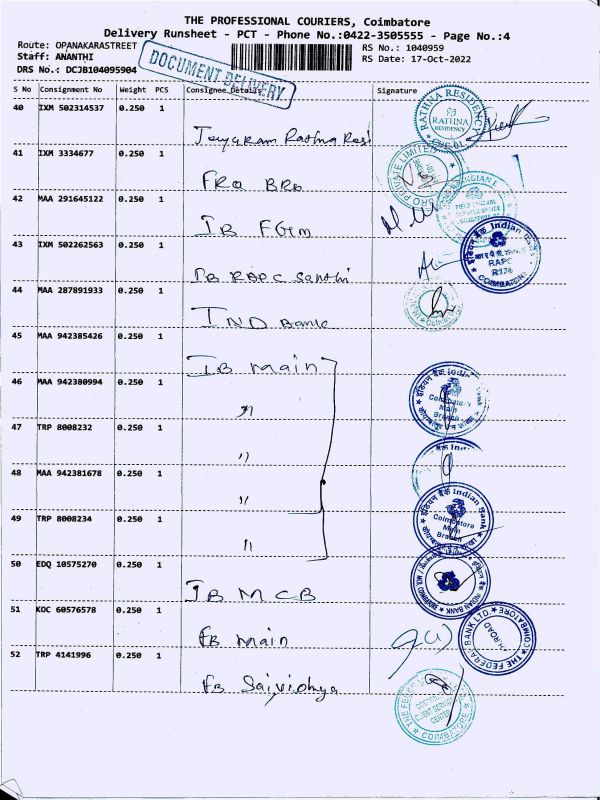 THE PROFESSIONAL COURIERS, Coimbatore
Delivery Runsheet - PCT - Phone No.:0422-3505555 - Page No.:4
Route: OPANAKARASTREET
RS No.: 1040959
Staff: ANANTHI
RS Date: 17-Oct-2022
DRS No.: DCJB104095904
DOCUMENT DELIVERY
S No Consignment No Weight PCS Consignee Details Signature
40 IXM 502314537 0.250 1
Jayaram Rathna Resi
RATHNA RESIDENCY
RATHNA
RESIDENCY
41 IXM 3334677 0.250 1
FRQ BRO
BRO PRIVATE LIMITED
42 MAA 291645122 0.250 1
IB FGM
43 IXM 502262563 0.250 1
IB RAPC Santhi
इंडियन बैंक Indian Bank
RAPC
COIMBATORE
44 MAA 287891933 0.250 1
IND Bank
45 MAA 942385426 0.250 1
IB main
46 MAA 942380994 0.250 1
"
इंडियन बैंक Indian
Coimbatore
Main
Branch
47 TRP 8008232 0.250 1
"
48 MAA 942381678 0.250 1
"
इंडियन बैंक Indian Bank
Coimbatore
Main
Branch
49 TRP 8008234 0.250 1
"
50 EDQ 10575270 0.250 1
IB MCB
INDIAN BANK
51 KOC 60576578 0.250 1
FB main
THE FEDERAL BANK LTD
COIMBATORE
52 TRP 4141996 0.250 1
FB Saividhya
THE FEDERAL
CLIENT SERVICE
CENTER
COIMBATORE